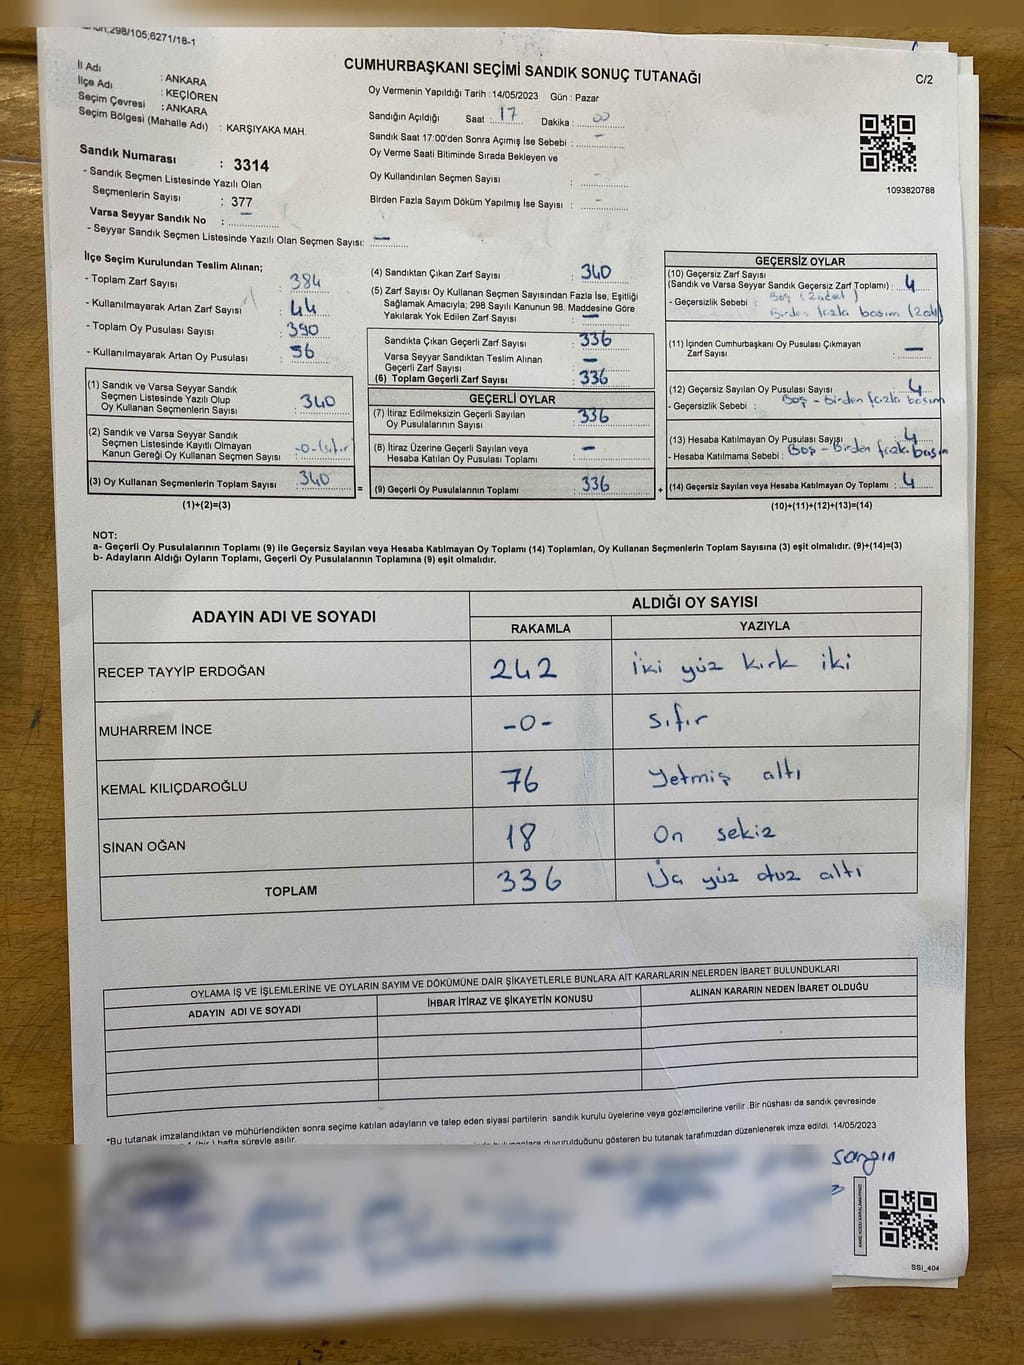 298/105;6271/18-1
CUMHURBAŞKANI SEÇİMİ SANDIK SONUÇ TUTANAĞI
C/2
İl Adı : ANKARA
İlçe Adı : KEÇİÖREN
Seçim Çevresi : ANKARA
Seçim Bölgesi (Mahalle Adı) : KARŞIYAKA MAH.
Oy Vermenin Yapıldığı Tarih : 14/05/2023 Gün : Pazar
Sandığın Açıldığı Saat : 17 Dakika : 00
Sandık Saat 17:00'den Sonra Açımış İse Sebebi : -
Oy Verme Saati Bitiminde Sırada Bekleyen ve
Oy Kullandırılan Seçmen Sayısı : -
Birden Fazla Sayım Döküm Yapılmış İse Sayısı : -
1093820788
Sandık Numarası : 3314
- Sandık Seçmen Listesinde Yazılı Olan
Seçmenlerin Sayısı : 377
Varsa Seyyar Sandık No : -
- Seyyar Sandık Seçmen Listesinde Yazılı Olan Seçmen Sayısı: -
İlçe Seçim Kurulundan Teslim Alınan;
- Toplam Zarf Sayısı : 384
- Kullanılmayarak Artan Zarf Sayısı : 44
- Toplam Oy Pusulası Sayısı : 390
- Kullanılmayarak Artan Oy Pusulası : 56
(1) Sandık ve Varsa Seyyar Sandık
Seçmen Listesinde Yazılı Olup
Oy Kullanan Seçmenlerin Sayısı : 340
(2) Sandık ve Varsa Seyyar Sandık
Seçmen Listesinde Kayıtlı Olmayan
Kanun Gereği Oy Kullanan Seçmen Sayısı : -0-(sıfır)
(3) Oy Kullanan Seçmenlerin Toplam Sayısı : 340 =
(1)+(2)=(3)
(4) Sandıktan Çıkan Zarf Sayısı : 340
(5) Zarf Sayısı Oy Kullanan Seçmen Sayısından Fazla İse, Eşitliği
Sağlamak Amacıyla; 298 Sayılı Kanunun 98. Maddesine Göre
Yakılarak Yok Edilen Zarf Sayısı : -
Sandıkta Çıkan Geçerli Zarf Sayısı : 336
Varsa Seyyar Sandıktan Teslim Alınan
Geçerli Zarf Sayısı : -
(6) Toplam Geçerli Zarf Sayısı : 336
GEÇERLİ OYLAR
(7) İtiraz Edilmeksizin Geçerli Sayılan
Oy Pusulalarının Sayısı : 336
(8) İtiraz Üzerine Geçerli Sayılan veya
Hesaba Katılan Oy Pusulası Toplamı : -
(9) Geçerli Oy Pusulalarının Toplamı : 336 +
GEÇERSİZ OYLAR
(10) Geçersiz Zarf Sayısı
(Sandık ve Varsa Seyyar Sandık Geçersiz Zarf Toplamı) : 4
- Geçersizlik Sebebi : Boş (2 adet)
Birden fazla basım (2 ad)
(11) İçinden Cumhurbaşkanı Oy Pusulası Çıkmayan
Zarf Sayısı : -
(12) Geçersiz Sayılan Oy Pusulası Sayısı : 4
- Geçersizlik Sebebi : Boş - Birden fazla basım
(13) Hesaba Katılmayan Oy Pusulası Sayısı : 4
- Hesaba Katılmama Sebebi : Boş - Birden fazla basım
(14) Geçersiz Sayılan veya Hesaba Katılmayan Oy Toplamı : 4
(10)+(11)+(12)+(13)=(14)
NOT:
a- Geçerli Oy Pusulalarının Toplamı (9) ile Geçersiz Sayılan veya Hesaba Katılmayan Oy Toplamı (14) Toplamları, Oy Kullanan Seçmenlerin Toplam Sayısına (3) eşit olmalıdır. (9)+(14)=(3)
b- Adayların Aldığı Oyların Toplamı, Geçerli Oy Pusulalarının Toplamına (9) eşit olmalıdır.
ADAYIN ADI VE SOYADI ALDIĞI OY SAYISI
RAKAMLA YAZIYLA
RECEP TAYYİP ERDOĞAN 242 İki yüz kırk iki
MUHARREM İNCE -0- Sıfır
KEMAL KILIÇDAROĞLU 76 Yetmiş altı
SİNAN OĞAN 18 On sekiz
TOPLAM 336 Üç yüz otuz altı
OYLAMA İŞ VE İŞLEMLERİNE VE OYLARIN SAYIM VE DÖKÜMÜNE DAİR ŞİKAYETLERLE BUNLARA AİT KARARLARIN NELERDEN İBARET BULUNDUKLARI
ADAYIN ADI VE SOYADI İHBAR İTİRAZ VE ŞİKAYETİN KONUSU ALINAN KARARIN NEDEN İBARET OLDUĞU
*Bu tutanak imzalandıktan ve mühürlendikten sonra seçime katılan adayların ve talep eden siyasi partilerin sandık kurulu üyelerine veya gözlemcilerine verilir. Bir nüshası da sandık çevresinde
hafta süreyle asılır.
duyurulduğunu gösteren bu tutanak tarafımızdan düzenlenerek imza edildi. 14/05/2023
KARE KODU KARALAMAYINIZ!
SSİ_404